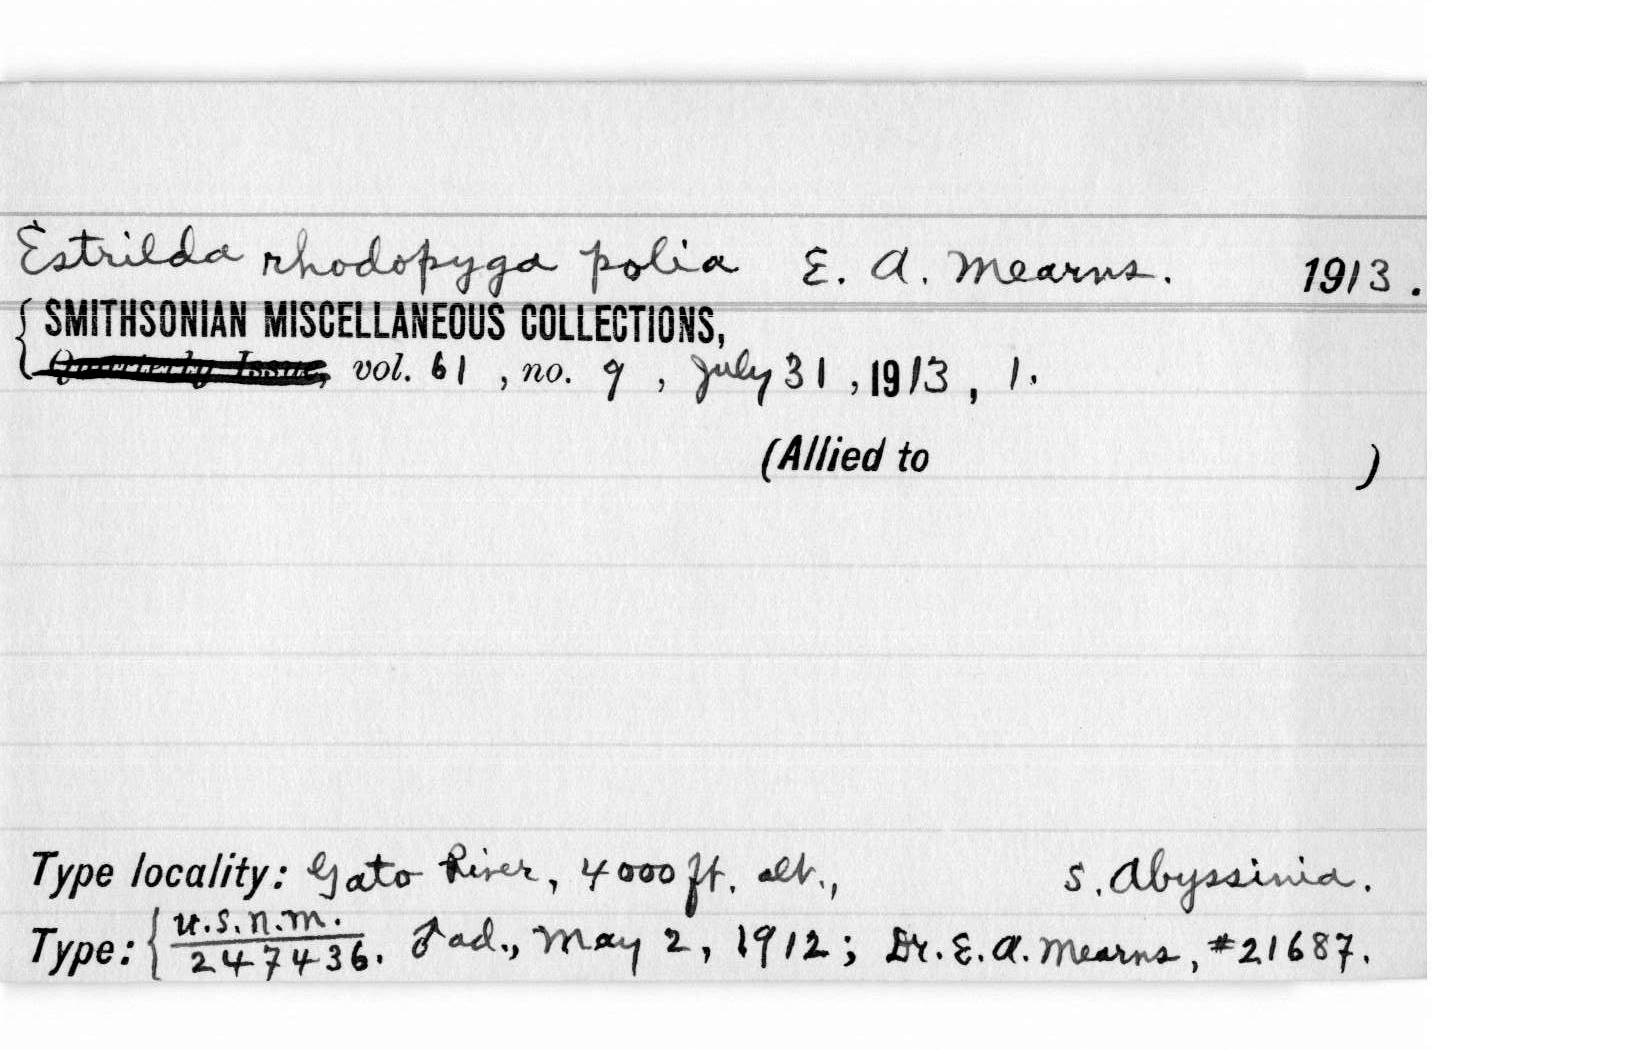 Estrilda rhodopyga polia E. A. Mearns. 1913.
SMITHSONIAN MISCELLANEOUS COLLECTIONS,
Quarterly Issue, vol. 61, no. 9, July 31, 1913, 1.
(Allied to )
Type locality: Gato River, 4000 ft. alt., S. Abyssinia.
Type: { U.S.N.M.
247436. ♂ ad., May 2, 1912; Dr. E. A. Mearns, #21687.